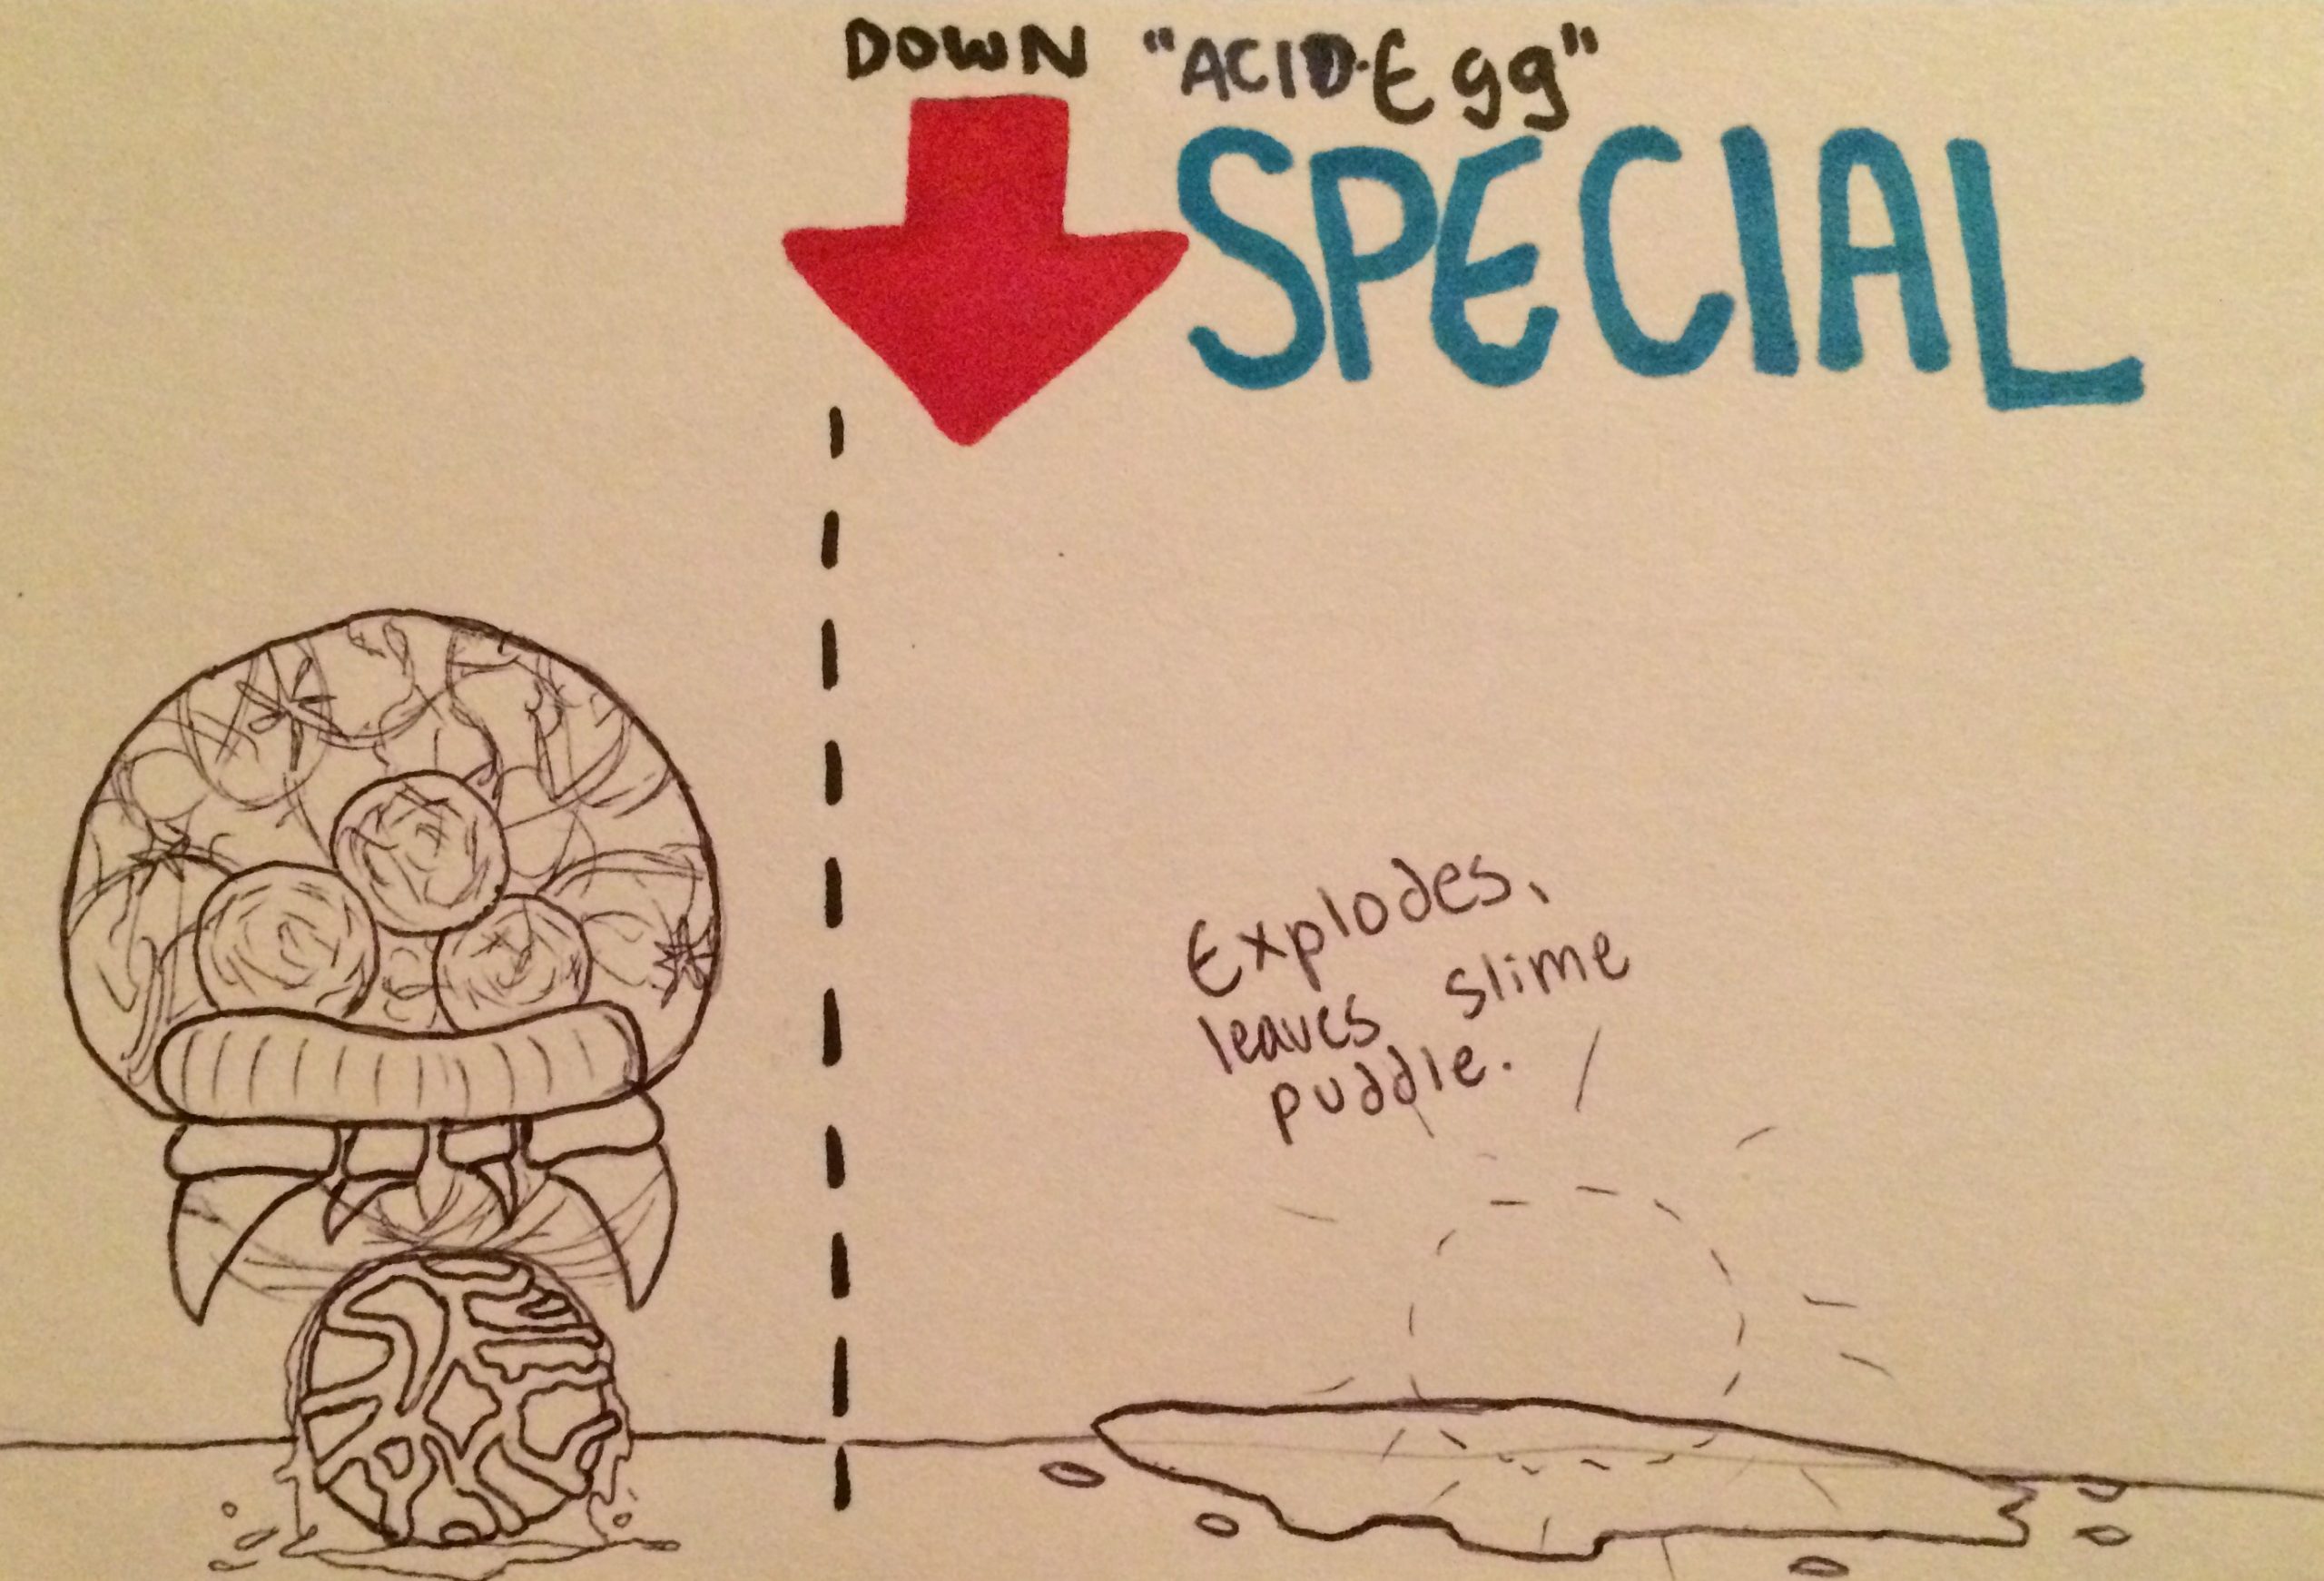 DOWN "ACID.Egg"
SPECIAL
Explodes,
leaves slime
puddle.